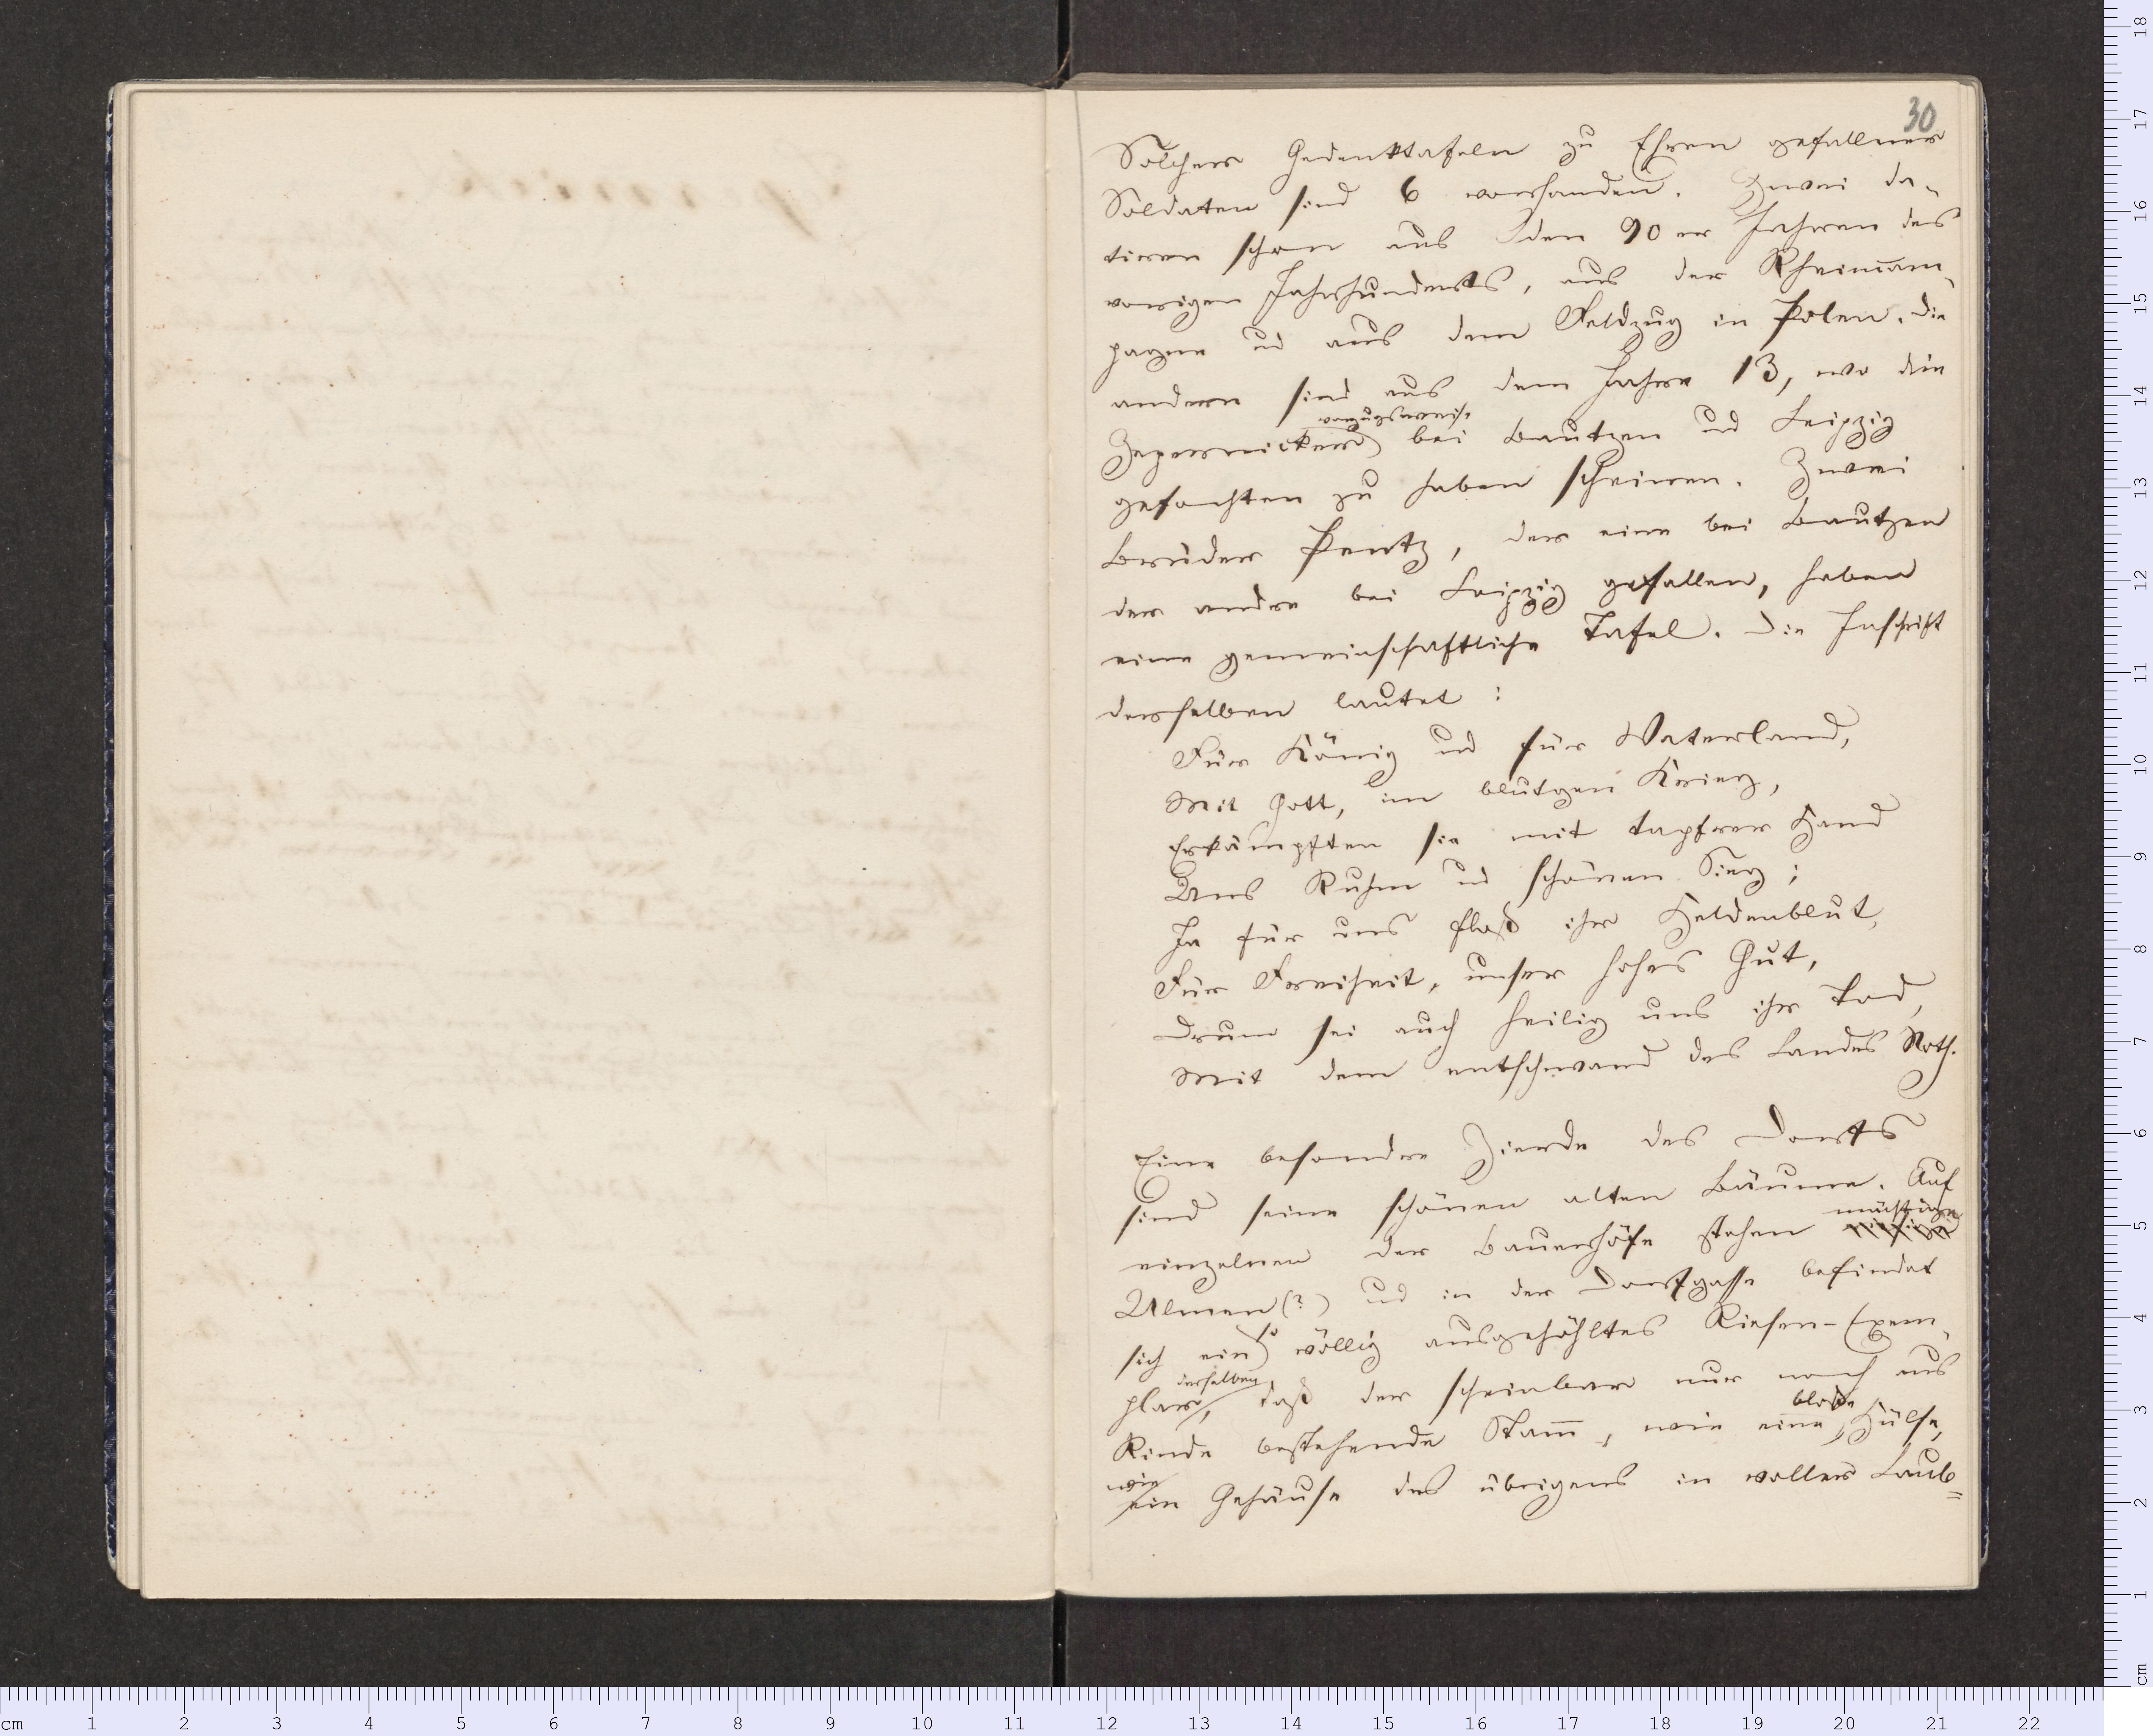 30
Solcher Gedenktafeln zu Ehren gefallner
Soldaten sind 6 vorhanden. Zwei da-
tiren schon aus den 90er Jahren des
vorigen Jahrhunderts, aus der Rheincam-
pagne ud aus dem Feldzug in Polen. Die
andern sind aus dem Jahre 13, wo die
vorzugsweise
Zepernicker bei Bautzen ud Leipzig
gefochten zu haben scheinen. Zwei
Brüder Pentz, der eine bei Bautzen
der andre bei Leipzig gefallen, haben
eine gemeinschaftliche Tafel. Die Inschrift
derselben lautet:
Für König ud für Vaterland,
Mit Gott, im blutgen Krieg,
Erkämpften sie mit tapfrer Hand
Uns Ruhm ud schönen Sieg;
Ja für uns floß ihr Heldenblut,
Für Freiheit, unser hohes Gut,
Drum sei auch heilig uns ihr Tod,
Mit dem entschwand des Landes Noth.
Eine besondre Zierde des Dorfs
sind seine schönen alten Bäume. Auf
mächtige
einzelnen der Bauerhöfe stehen riesige
Ulmen (?) ud in der Dorfgasse befindet
so
sich ein völlig ausgehöhltes Riesen-Exem-
derselben
plar, daß der scheinbar nur noch aus
bloße
Rinde bestehende Stam̄, wie eine Hülse,
wie
ein Gehäuse des übrigens in voller Laub-